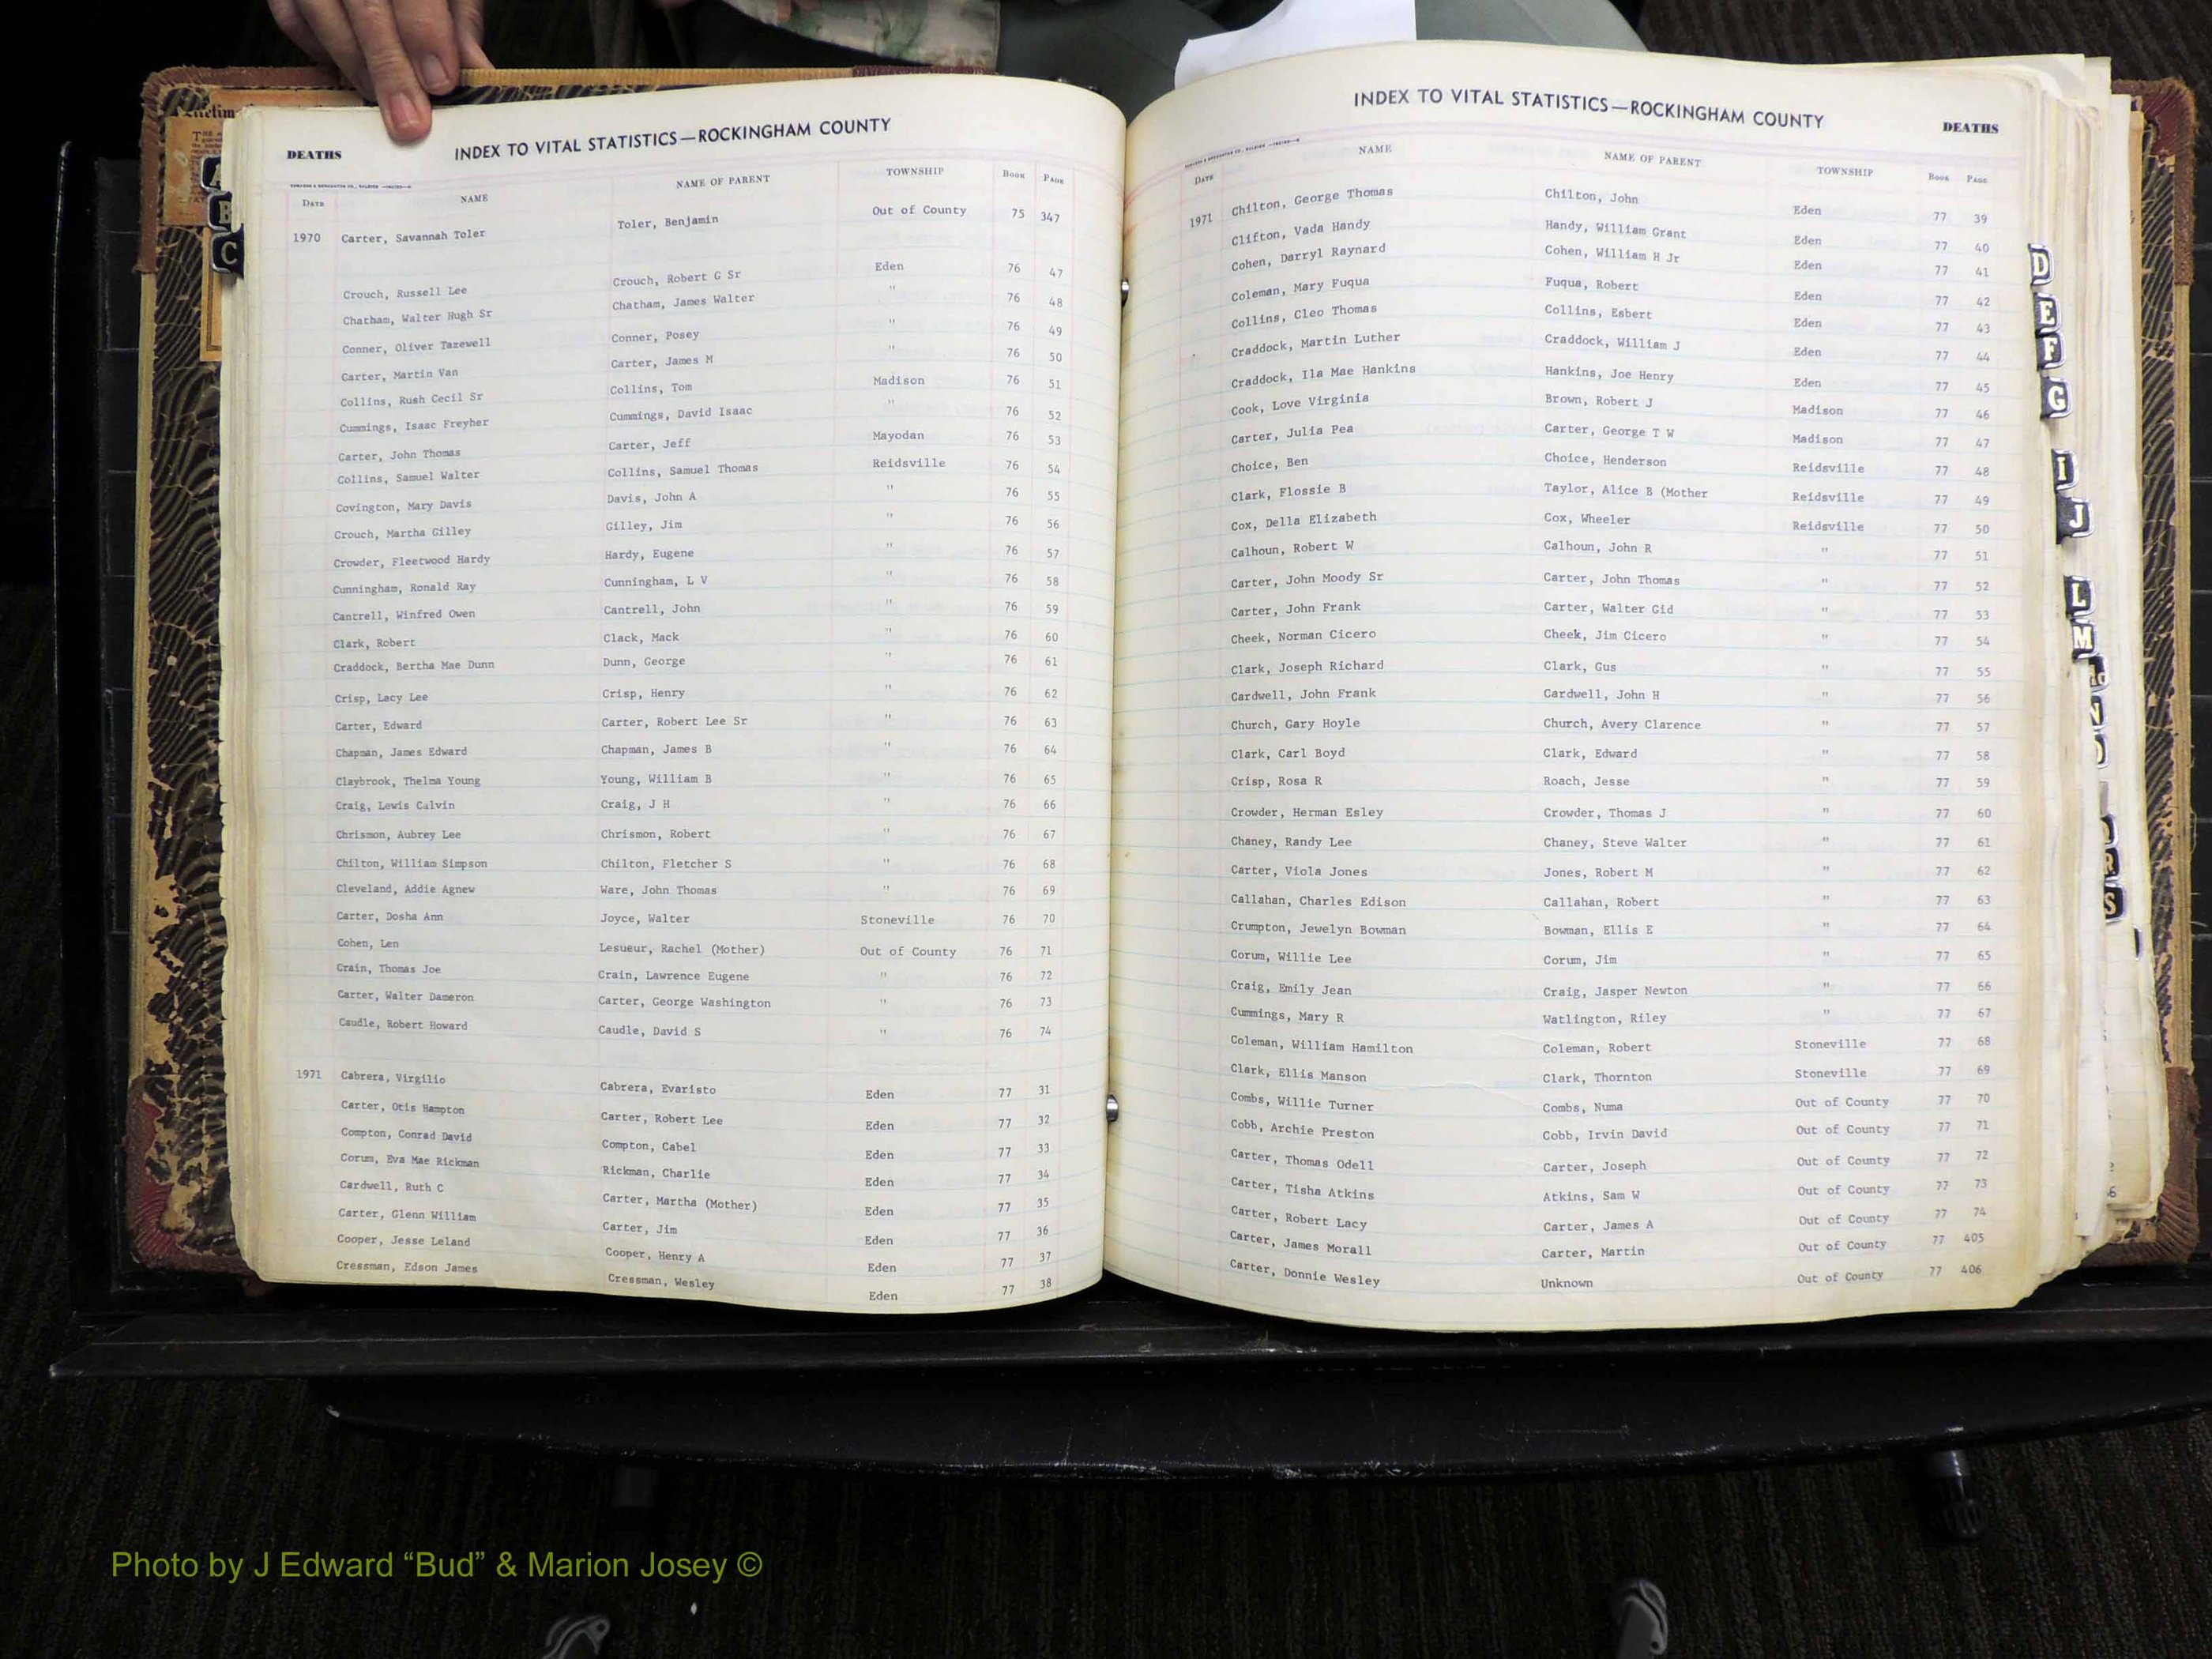 INDEX TO VITAL STATISTICS—ROCKINGHAM COUNTY
DEATHS
DATE NAME NAME OF PARENT TOWNSHIP BOOK PAGE
1970 Carter, Savannah Toler Toler, Benjamin Out of County 75 347
Crouch, Russell Lee Crouch, Robert G Sr Eden 76 47
Chatham, Walter Hugh Sr Chatham, James Walter " 76 48
Conner, Oliver Tazewell Conner, Posey " 76 49
Carter, Martin Van Carter, James M " 76 50
Collins, Rush Cecil Sr Collins, Tom Madison 76 51
Cummings, Isaac Freyher Cummings, David Isaac " 76 52
Carter, John Thomas Carter, Jeff Mayodan 76 53
Collins, Samuel Walter Collins, Samuel Thomas Reidsville 76 54
Covington, Mary Davis Davis, John A " 76 55
Crouch, Martha Gilley Gilley, Jim " 76 56
Crowder, Fleetwood Hardy Hardy, Eugene " 76 57
Cunningham, Ronald Ray Cunningham, L V " 76 58
Cantrell, Winfred Owen Cantrell, John " 76 59
Clark, Robert Clack, Mack " 76 60
Craddock, Bertha Mae Dunn Dunn, George " 76 61
Crisp, Lacy Lee Crisp, Henry " 76 62
Carter, Edward Carter, Robert Lee Sr " 76 63
Chapman, James Edward Chapman, James B " 76 64
Claybrook, Thelma Young Young, William B " 76 65
Craig, Lewis Calvin Craig, J H " 76 66
Chrismon, Aubrey Lee Chrismon, Robert " 76 67
Chilton, William Simpson Chilton, Fletcher S " 76 68
Cleveland, Addie Agnew Ware, John Thomas " 76 69
Carter, Dosha Ann Joyce, Walter Stoneville 76 70
Cohen, Len Lesueur, Rachel (Mother) Out of County 76 71
Crain, Thomas Joe Crain, Lawrence Eugene " 76 72
Carter, Walter Dameron Carter, George Washington " 76 73
Caudle, Robert Howard Caudle, David S " 76 74
1971 Cabrera, Virgilio Cabrera, Evaristo Eden 77 31
Carter, Otis Hampton Carter, Robert Lee Eden 77 32
Compton, Conrad David Compton, Cabel Eden 77 33
Corum, Eva Mae Rickman Rickman, Charlie Eden 77 34
Cardwell, Ruth C Carter, Martha (Mother) Eden 77 35
Carter, Glenn William Carter, Jim Eden 77 36
Cooper, Jesse Leland Cooper, Henry A Eden 77 37
Cressman, Edson James Cressman, Wesley Eden 77 38
INDEX TO VITAL STATISTICS—ROCKINGHAM COUNTY
DEATHS
DATE NAME NAME OF PARENT TOWNSHIP BOOK PAGE
1971 Chilton, George Thomas Chilton, John Eden 77 39
Clifton, Vada Handy Handy, William Grant Eden 77 40
Cohen, Darryl Raynard Cohen, William H Jr Eden 77 41
Coleman, Mary Fuqua Fuqua, Robert Eden 77 42
Collins, Cleo Thomas Collins, Esbert Eden 77 43
Craddock, Martin Luther Craddock, William J Eden 77 44
Craddock, Ila Mae Hankins Hankins, Joe Henry Eden 77 45
Cook, Love Virginia Brown, Robert J Madison 77 46
Carter, Julia Pea Carter, George T W Madison 77 47
Choice, Ben Choice, Henderson Reidsville 77 48
Clark, Flossie B Taylor, Alice B (Mother Reidsville 77 49
Cox, Della Elizabeth Cox, Wheeler Reidsville 77 50
Calhoun, Robert W Calhoun, John R " 77 51
Carter, John Moody Sr Carter, John Thomas " 77 52
Carter, John Frank Carter, Walter Gid " 77 53
Cheek, Norman Cicero Cheek, Jim Cicero " 77 54
Clark, Joseph Richard Clark, Gus " 77 55
Cardwell, John Frank Cardwell, John H " 77 56
Church, Gary Hoyle Church, Avery Clarence " 77 57
Clark, Carl Boyd Clark, Edward " 77 58
Crisp, Rosa R Roach, Jesse " 77 59
Crowder, Herman Esley Crowder, Thomas J " 77 60
Chaney, Randy Lee Chaney, Steve Walter " 77 61
Carter, Viola Jones Jones, Robert M " 77 62
Callahan, Charles Edison Callahan, Robert " 77 63
Crumpton, Jewelyn Bowman Bowman, Ellis E " 77 64
Corum, Willie Lee Corum, Jim " 77 65
Craig, Emily Jean Craig, Jasper Newton " 77 66
Cummings, Mary R Watlington, Riley " 77 67
Coleman, William Hamilton Coleman, Robert Stoneville 77 68
Clark, Ellis Manson Clark, Thornton Stoneville 77 69
Combs, Willie Turner Combs, Numa Out of County 77 70
Cobb, Archie Preston Cobb, Irvin David Out of County 77 71
Carter, Thomas Odell Carter, Joseph Out of County 77 72
Carter, Tisha Atkins Atkins, Sam W Out of County 77 73
Carter, Robert Lacy Carter, James A Out of County 77 74
Carter, James Morall Carter, Martin Out of County 77 405
Carter, Donnie Wesley Unknown Out of County 77 406
A
B
C
D
E
F
G
I
J
L
M
N
R
S
Photo by J Edward “Bud” & Marion Josey ©